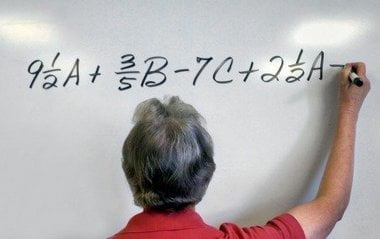 9½A + ⅗B - 7C + 2½A -